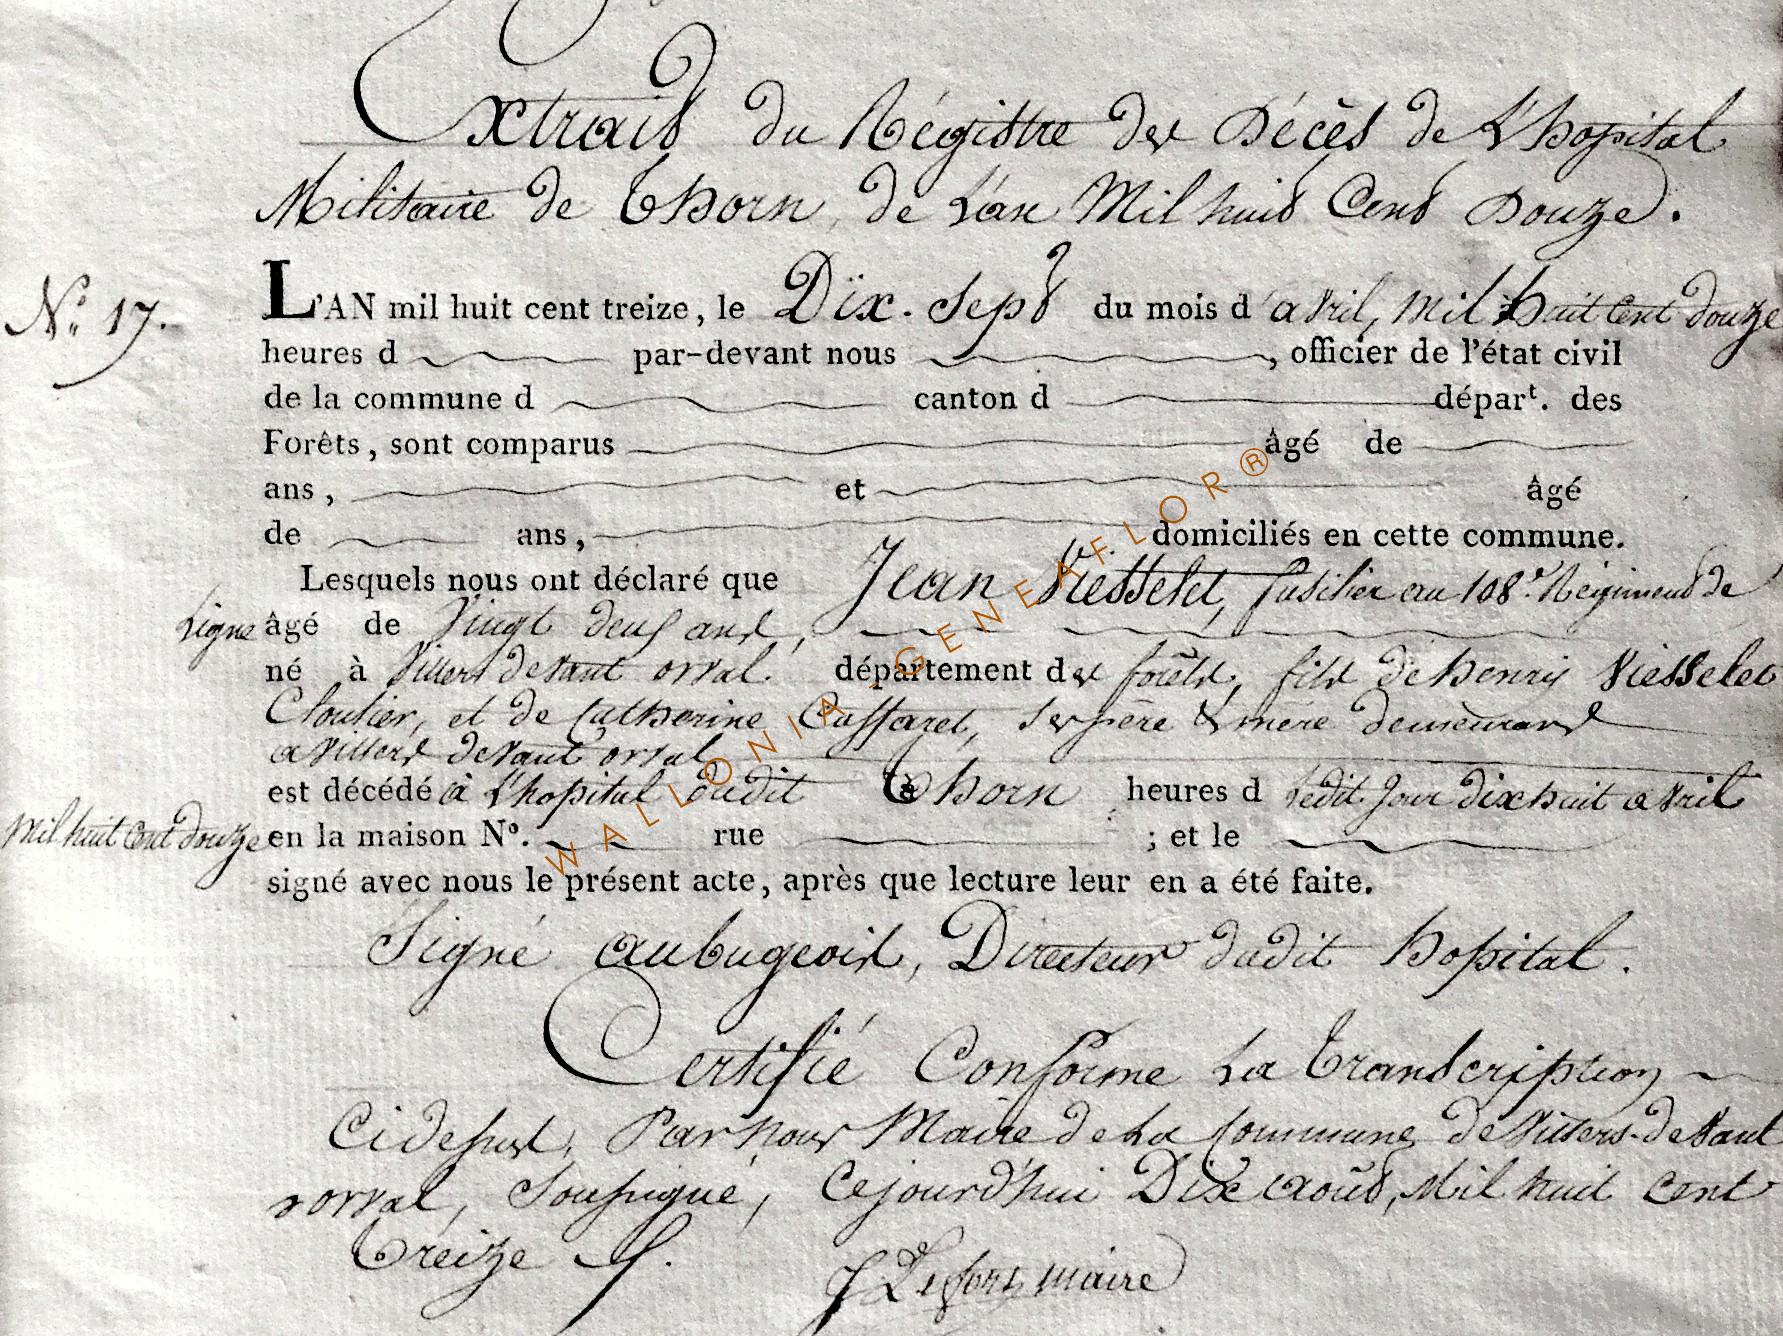 Extrait du Régistre des Décès de L'hopital
Militaire de Thorn, de L'an Mil huit Cent Douze.
N.° 17.
L'AN mil huit cent treize, le Dix-Sept du mois d'avril, mil huit Cent douze
heures d par-devant nous , officier de l'état civil
de la commune d canton dépar^t. des
Forêts, sont comparus âgé de
ans, et âgé
de ans, domiciliés en cette commune.
Lesquels nous ont déclaré que Jean Viesselet, fusilier au 108.e Régiment de
Ligne âgé de Vingt deux ans,
né à Villers devant orval. département des forêts, fils de henry Viesselet
Cloutier, et de Catherine ses père & mère demeurant
a Villers devant orval
est décédé à L'hopital dudit Thorn heures d Ledit jour dixhuit avril
Mil huit Cent douze en la maison N°. rue ; et le
signé avec nous le présent acte, après que lecture leur en a été faite.
Signé aubugeois, Directeur dudit hopital.
Certifié Conforme La Transcription
Cidessus, Par nous Maire de La Commune de Villers-devant
orval, Soussigné, Cejourd'hui Dix août, Mil huit Cent
Treize
J Lefort, maire
WALLONIA-GENEAFLOR®